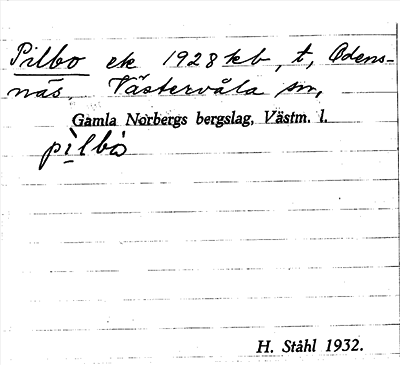 Pilbo ek 1928 kb, t, Odens-
näs, Västervåla sn,
Gamla Norbergs bergslag, Västm. l.
pìlbò
H. Ståhl 1932.